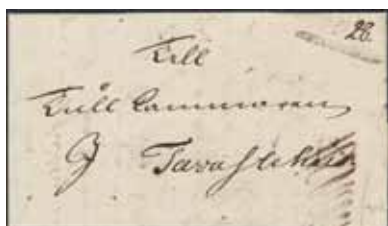 28.
Till
Tull Cammaren
J Tavastehus